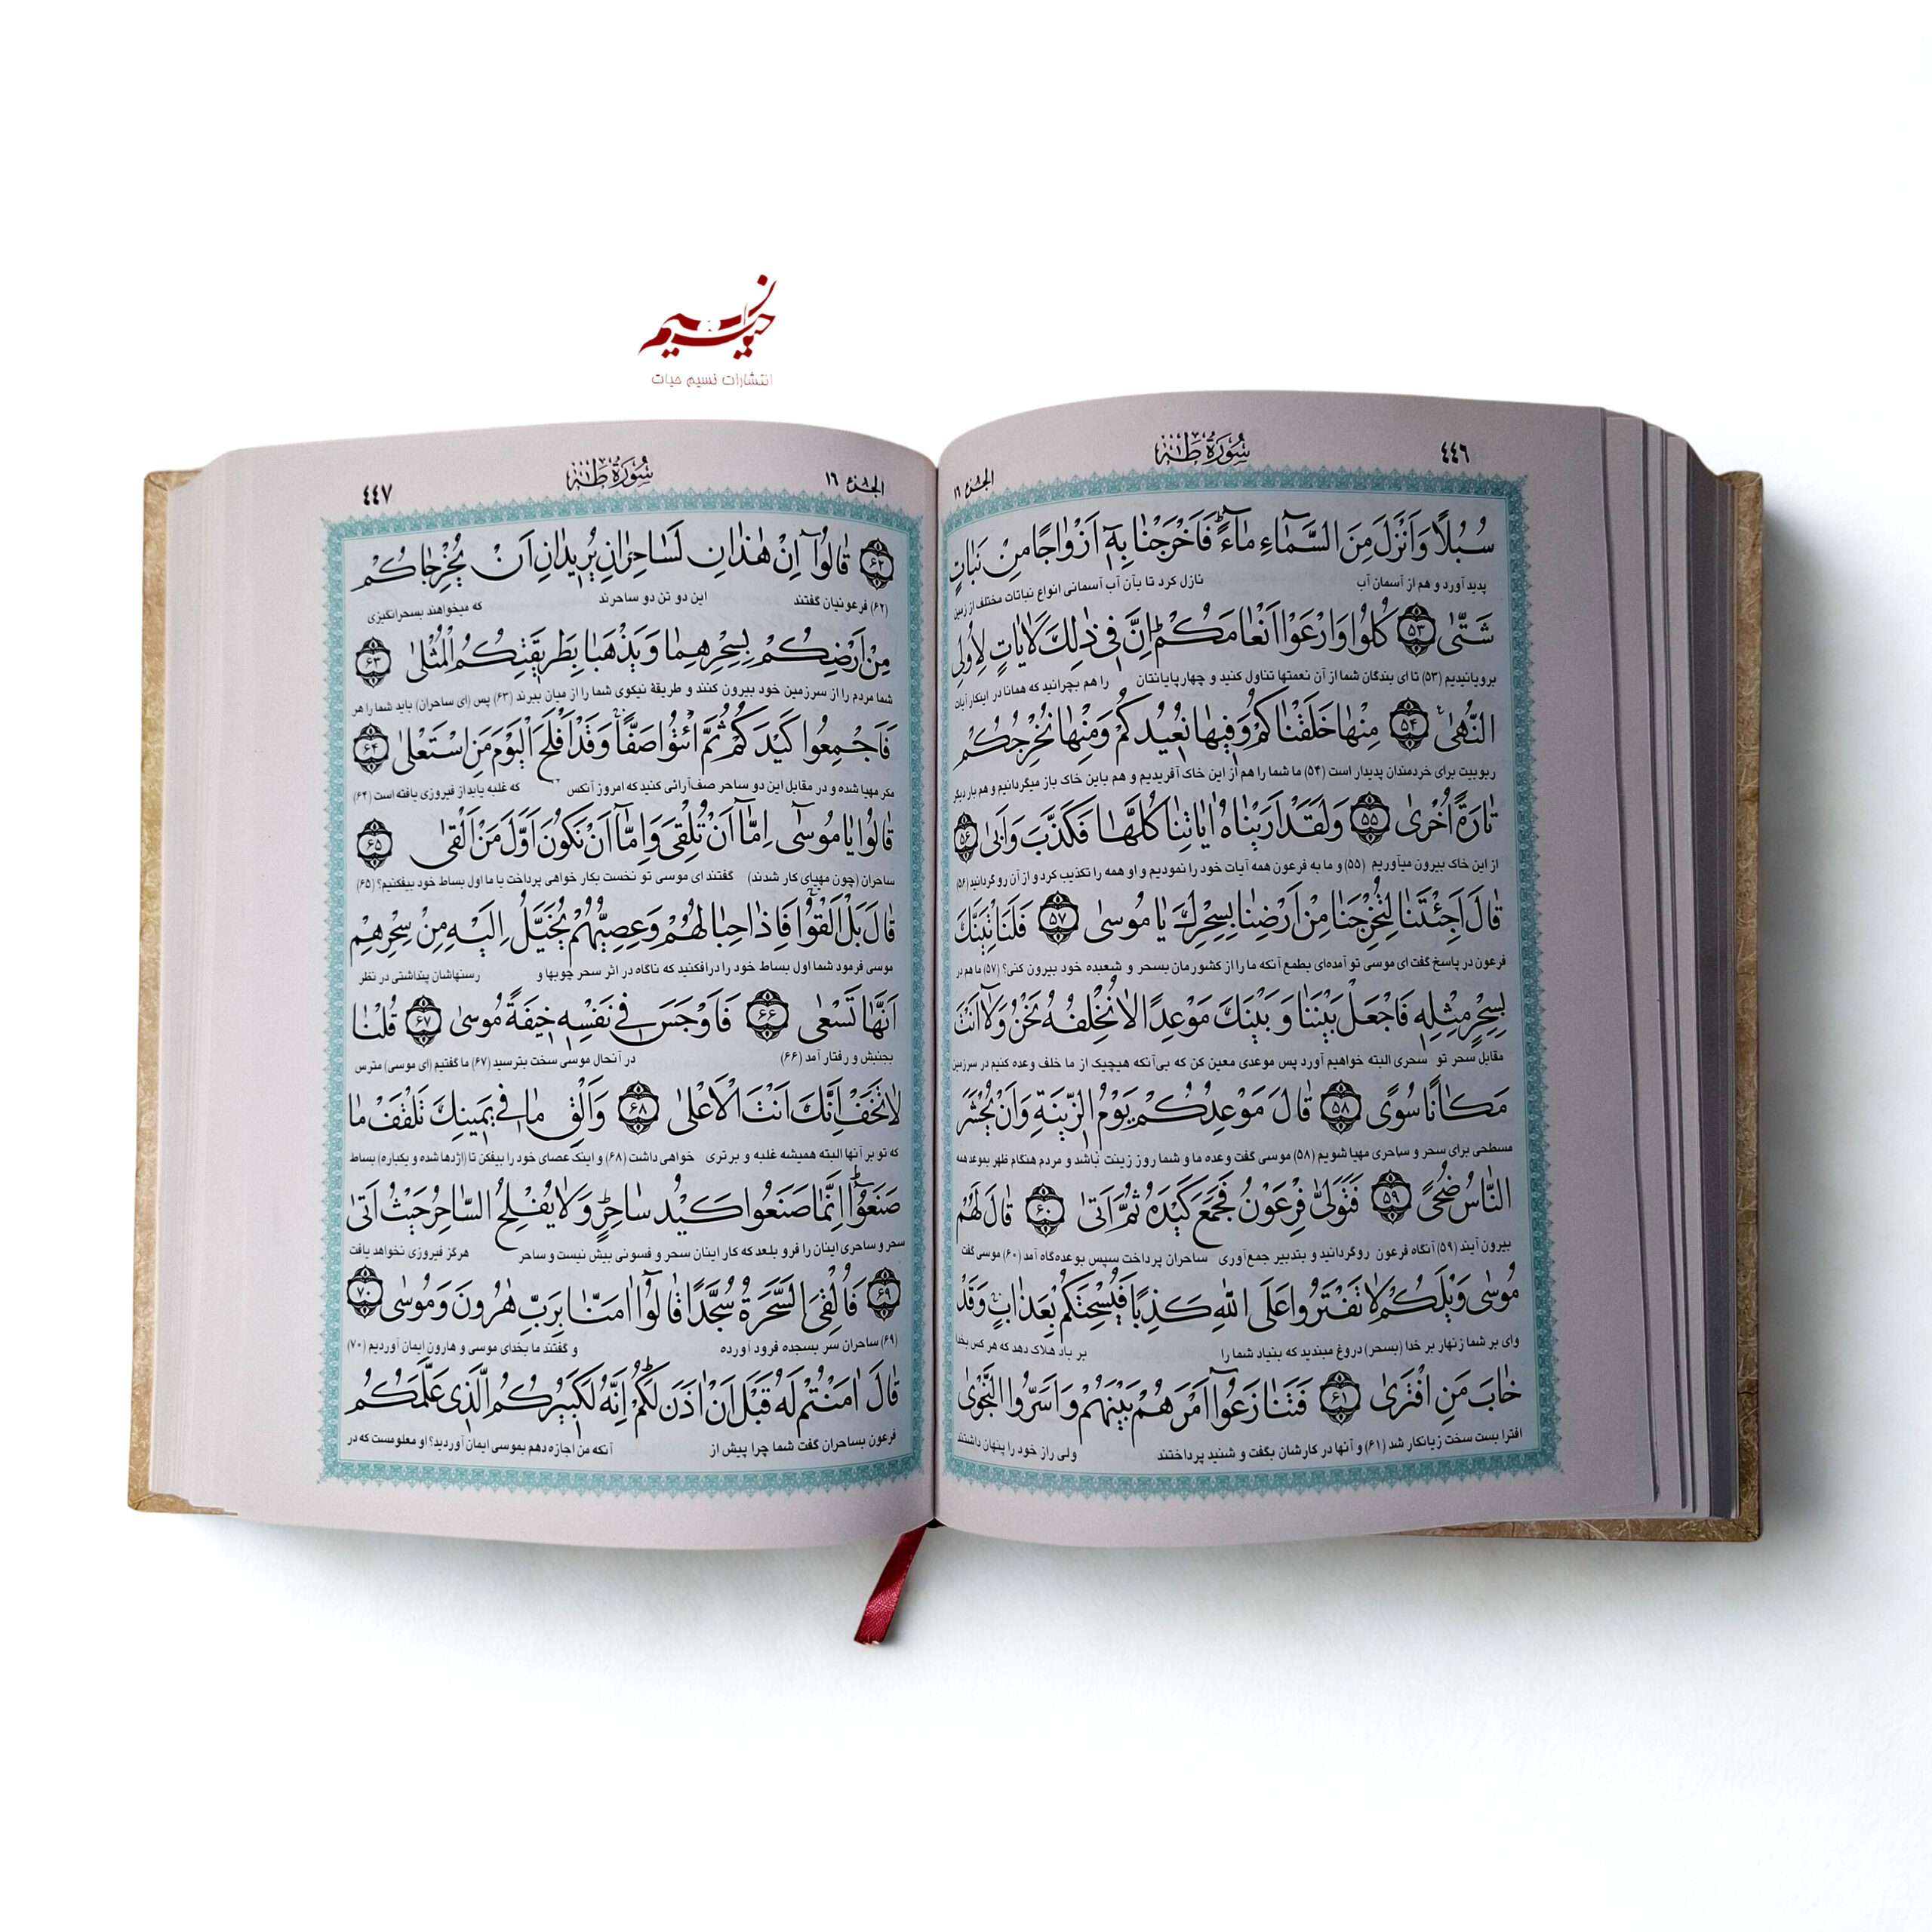 نسیم حیات
انتشارات نسیم حیات
٤٤٦
سُورَةُ طٰهٰ
الجزء ١٦
سُبُلًا وَاَنْزَلَ مِنَ السَّمَآءِ مَآءً فَاَخْرَجْنَا بِهٖٓ اَزْوَاجًا مِنْ نَبَاتٍ
پدید آورد و هم از آسمان آب نازل کرد تا بآن آب آسمانی انواع نباتات مختلف از زمین
شَتّٰى ﴿۵۳﴾ كُلُوا وَارْعَوْا اَنْعَامَكُمْ اِنَّ فى ذٰلِكَ لَاٰيَاتٍ لِاُولِى
برویانیدیم (۵۳) تا ای بندگان شما از آن نعمتها تناول کنید و چهارپایانتان را هم بچرانید که همانا در اینکار آیات
النُّهٰى ﴿۵۴﴾ مِنْهَا خَلَقْنَاكُمْ وَفيهَا نُعيدُكُمْ وَمِنْهَا نُخْرِجُكُمْ
ربوبیت برای خردمندان پدیدار است (۵۴) ما شما را هم از این خاک آفریدیم و هم باین خاک باز میگردانیم و هم بار دیگر
تَارَةً اُخْرٰى ﴿۵۵﴾ وَلَقَدْ اَرَيْنَاهُ اٰيَاتِنَا كُلَّهَا فَكَذَّبَ وَاَبٰى ﴿۵۶﴾
از این خاک بیرون میآوریم (۵۵) و ما به فرعون همه آیات خود را نمودیم و او همه را تکذیب کرد و از آن رو گردانید (۵۶)
قَالَ اَجِئْتَنَا لِتُخْرِجَنَا مِنْ اَرْضِنَا بِسِحْرِكَ يَا مُوسٰى ﴿۵۷﴾ فَلَنَاْتِيَنَّكَ
فرعون در پاسخ گفت ای موسی تو آمده‌ای بطمع آنکه ما را از کشورمان بسحر و شعبده خود بیرون کنی؟ (۵۷) ما هم در
بِسِحْرٍ مِثْلِهٖ فَاجْعَلْ بَيْنَنَا وَبَيْنَكَ مَوْعِدًا لَا نُخْلِفُهُ نَحْنُ وَلَآ اَنْتَ
مقابل سحر تو سحری البته خواهیم آورد پس موعدی معین کن که بی‌آنکه هیچیک از ما خلف وعده کنیم در سرزمین
مَكَانًا سُوًى ﴿۵۸﴾ قَالَ مَوْعِدُكُمْ يَوْمُ الزّينَةِ وَاَنْ يُحْشَرَ
مسطحی برای سحر و ساحری مهیا شویم (۵۸) موسی گفت وعده ما و شما روز زینت باشد و مردم هنگام ظهر بموعد همه
النَّاسُ ضُحًى ﴿۵۹﴾ فَتَوَلّٰى فِرْعَوْنُ فَجَمَعَ كَيْدَهُ ثُمَّ اَتٰى ﴿۶۰﴾ قَالَ لَهُمْ
بیرون آیند (۵۹) آنگاه فرعون روگردانید و بتدبیر جمع‌آوری ساحران پرداخت سپس بوعده‌گاه آمد (۶۰) موسی گفت
مُوسٰى وَيْلَكُمْ لَا تَفْتَرُوا عَلَى اللّٰهِ كَذِبًا فَيُسْحِتَكُمْ بِعَذَابٍ وَقَدْ
وای بر شما زنهار بر خدا (بسحر) دروغ مبندید که بنیاد شما را بر باد هلاک دهد که هر کس بخدا
خَابَ مَنِ افْتَرٰى ﴿۶۱﴾ فَتَنَازَعُوٓا اَمْرَهُمْ بَيْنَهُمْ وَاَسَرُّوا النَّجْوٰى
افترا بست سخت زیانکار شد (۶۱) و آنها در کارشان بگفت و شنید پرداختند ولی راز خود را پنهان داشتند
الجزء ١٦
سُورَةُ طٰهٰ
٤٤٧
﴿۶۲﴾ قَالُوٓا اِنْ هٰذَانِ لَسَاحِرَانِ يُريدَانِ اَنْ يُخْرِجَاكُمْ
(۶۲) فرعونیان گفتند این دو تن دو ساحرند که میخواهند بسحرانگیزی
مِنْ اَرْضِكُمْ بِسِحْرِهِمَا وَيَذْهَبَا بِطَريقَتِكُمُ الْمُثْلٰى ﴿۶۳﴾
شما مردم را از سرزمین خود بیرون کنند و طریقهٔ نیکوی شما را از میان ببرند (۶۳) پس (ای ساحران) باید شما را هر
فَاَجْمِعُوا كَيْدَكُمْ ثُمَّ ائْتُوا صَفًّا وَقَدْ اَفْلَحَ الْيَوْمَ مَنِ اسْتَعْلٰى ﴿۶۴﴾
مکر مهیا شده و در مقابل این دو ساحر صف‌آرائی کنید که امروز آنکس که غلبه یابد از فیروزی یافته است (۶۴)
قَالُوا يَا مُوسٰٓى اِمَّآ اَنْ تُلْقِىَ وَاِمَّآ اَنْ نَكُونَ اَوَّلَ مَنْ اَلْقٰى ﴿۶۵﴾
ساحران (چون مهیای کار شدند) گفتند ای موسی تو نخست بکار خواهی پرداخت یا ما اول بساط خود بیفکنیم؟ (۶۵)
قَالَ بَلْ اَلْقُوا فَاِذَا حِبَالُهُمْ وَعِصِيُّهُمْ يُخَيَّلُ اِلَيْهِ مِنْ سِحْرِهِمْ
موسی فرمود شما اول بساط خود را درافکنید که ناگاه در اثر سحر چوبها و رسنهاشان پنداشتی در نظر
اَنَّهَا تَسْعٰى ﴿۶۶﴾ فَاَوْجَسَ فى نَفْسِهٖ خيفَةً مُوسٰى ﴿۶۷﴾ قُلْنَا
بجنبش و رفتار آمد (۶۶) در آنحال موسی سخت بترسید (۶۷) ما گفتیم (ای موسی) مترس
لَا تَخَفْ اِنَّكَ اَنْتَ الْاَعْلٰى ﴿۶۸﴾ وَاَلْقِ مَا فى يَمينِكَ تَلْقَفْ مَا
که تو بر آنها البته همیشه غلبه و برتری خواهی داشت (۶۸) و اینک عصای خود را بیفکن تا (اژدها شده و یکباره) بساط
صَنَعُوٓا اِنَّمَا صَنَعُوا كَيْدُ سَاحِرٍ وَلَا يُفْلِحُ السَّاحِرُ حَيْثُ اَتٰى
سحر و ساحری اینان را فرو بلعد که کار اینان سحر و فسونی بیش نیست و ساحر هرگز فیروزی نخواهد یافت
﴿۶۹﴾ فَاُلْقِىَ السَّحَرَةُ سُجَّدًا قَالُوٓا اٰمَنَّا بِرَبِّ هٰرُونَ وَمُوسٰى ﴿۷۰﴾
(۶۹) ساحران سر بسجده فرود آورده و گفتند ما بخدای موسی و هارون ایمان آوردیم (۷۰)
قَالَ اٰمَنْتُمْ لَهُ قَبْلَ اَنْ اٰذَنَ لَكُمْ اِنَّهُ لَكَبيرُكُمُ الَّذى عَلَّمَكُمُ
فرعون بساحران گفت شما چرا پیش از آنکه من اجازه دهم بموسی ایمان آوردید؟ او معلومست که در